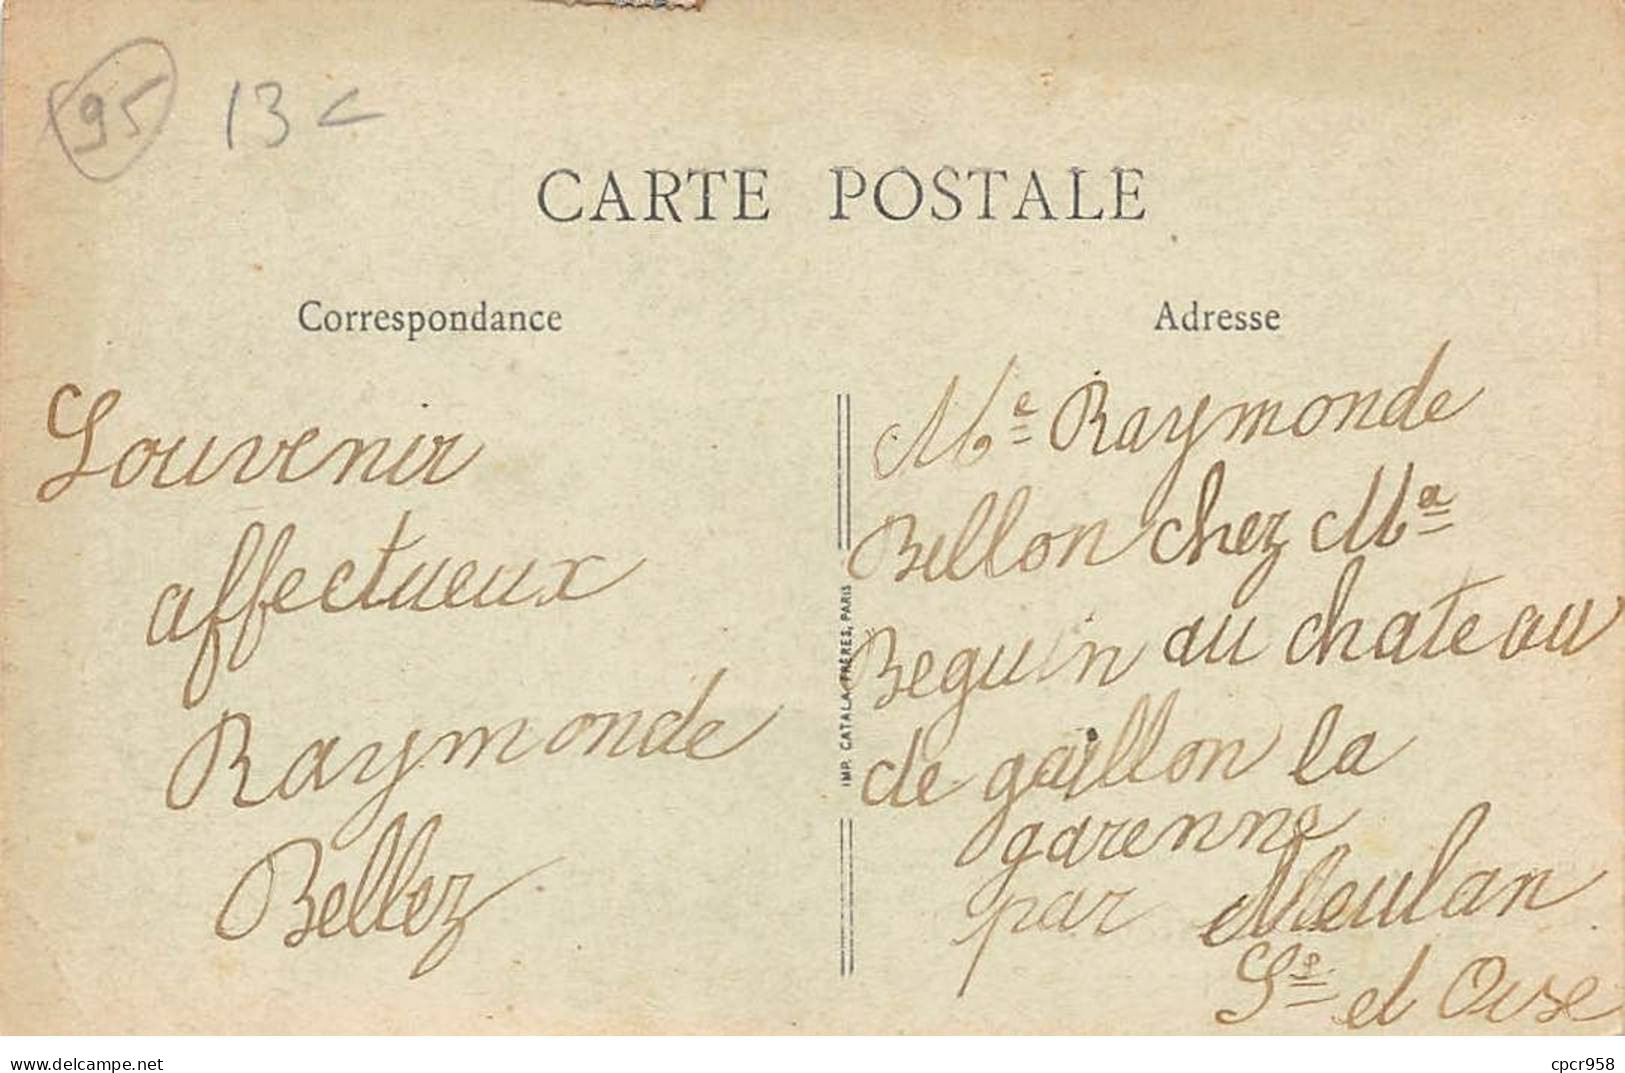 95 13
CARTE POSTALE
Correspondance
Souvenir
affectueux
Raymonde
Bellez
IMP. CATALA FRÈRES, PARIS
Adresse
Me Raymonde
Bellon chez Ma
Beguin au chateau
de gaillon la
garenne
par Meulan
Se et Oise
www.delcampe.net
cpcr958